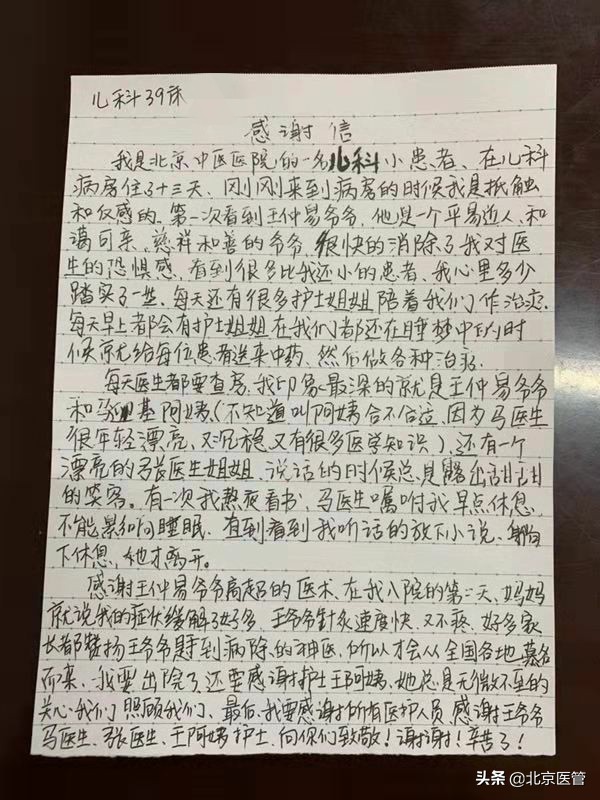 儿科39床
感谢信
我是北京中医医院的一名儿科小患者、在儿科
病房住了十三天、刚刚来到病房的时候我是抵触
和仅感的。第一次看到王仲易爷爷，他是一个平易近人、和
蔼可亲、慈祥和善的爷爷，很快的消除了我对医
生的恐惧感，看到很多比我还小的患者、我心里多少
踏实了一些、每天还有很多护士姐姐陪着我们作治疗.
每天早上都会有护士姐姐在我们都还在睡梦中的时
候就给每位患者送来中药、然后做各种治疗.
每天医生都要查房、我印象最深的就是王仲易爷爷
和马 基阿姨、(不知道叫阿姨合不合适、因为马医生
很年轻漂亮、又沉稳又有很多医学知识)、还有一个
漂亮的张医生姐姐、说话的时候总是露出甜甜
的笑容。有一次我熬夜看书、马医生嘱咐我早点休息、
不能累 睡眠、直到看到我听话的放下小说、躺
下休息、她才离开。
感谢王仲易爷爷高超的医术、在我入院的第二天、妈妈
就说我的症状缓解了好多、王爷爷针灸速度快、又不疼、好多家
长都赞扬王爷爷是手到病除的神医、所以才会从全国各地慕名
而来、我要出院了还要感谢护士王阿姨、她总是无微不至的
关心我们、照顾我们、最后、我要感谢所有医护人员、感谢王爷爷
马医生、张医生、王阿姨护士、向你们致敬！谢谢！辛苦了！
头条 @北京医管